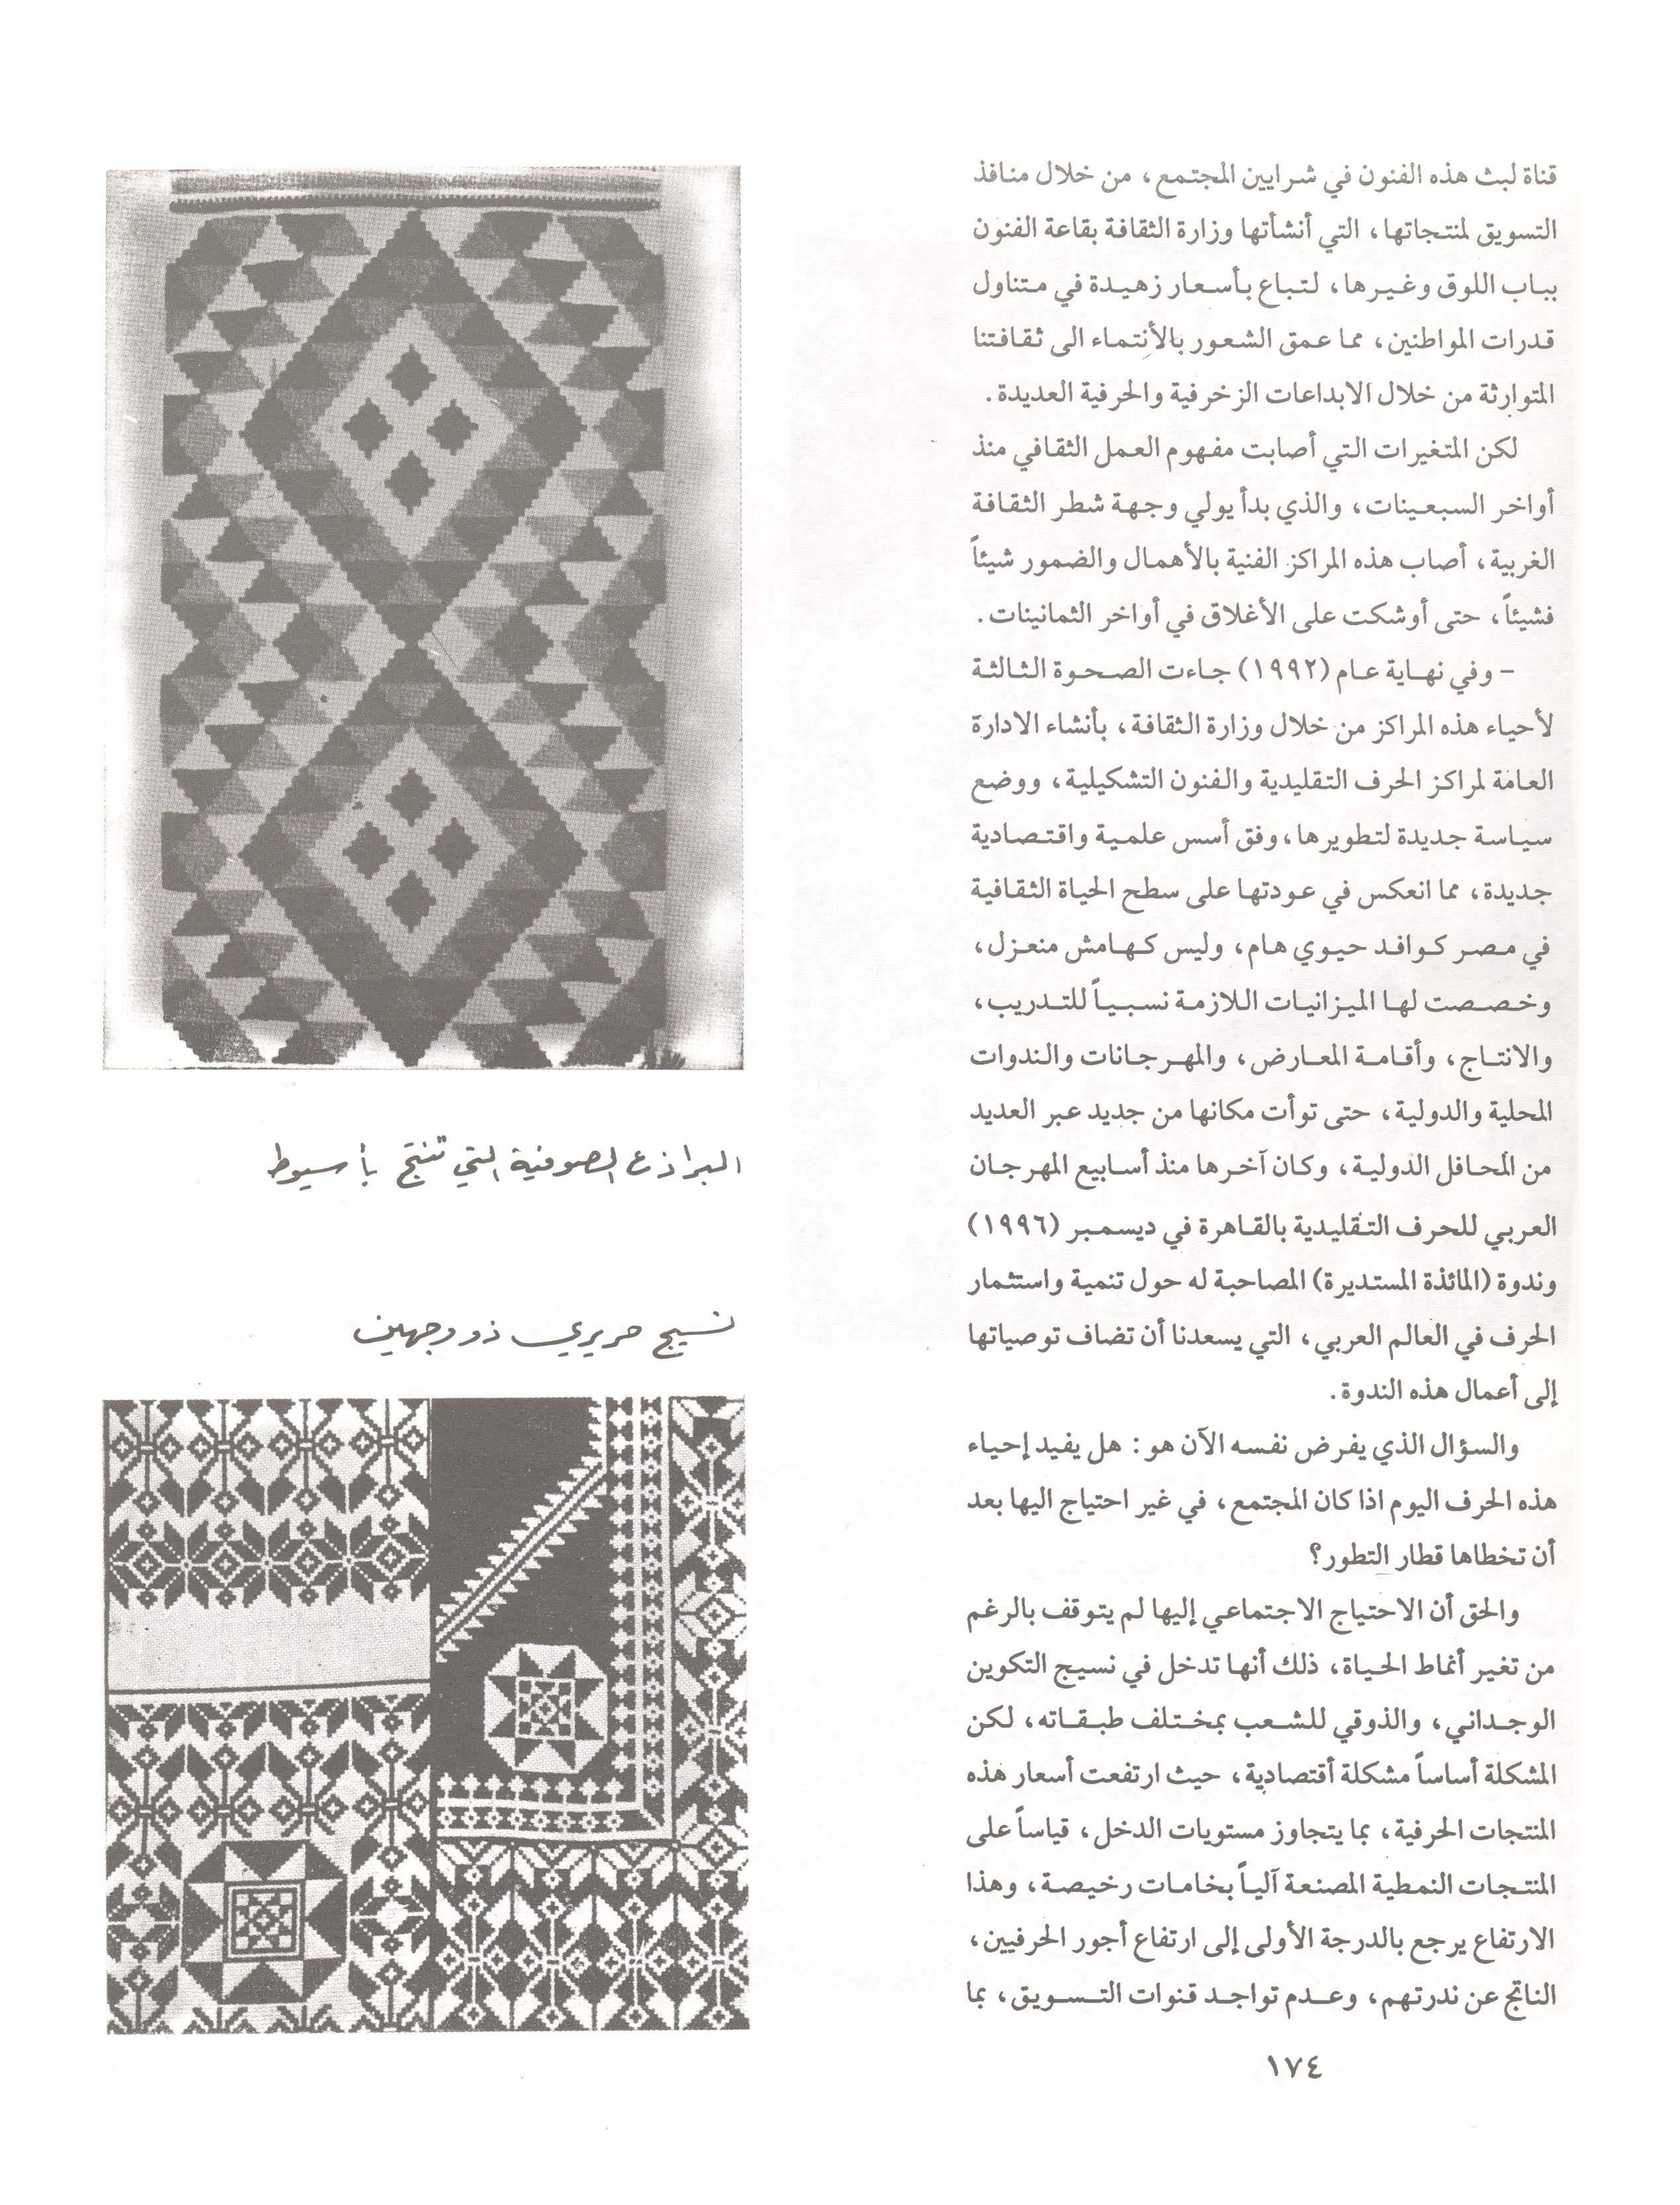 قناة لبث هذه الفنون في شرايين المجتمع، من خلال منافذ
التسويق لمنتجاتها، التي أنشأتها وزارة الثقافة بقاعة الفنون
بباب اللوق وغيرها، لتباع بأسعار زهيدة في متناول
قدرات المواطنين، مما عمق الشعور بالأنتماء الى ثقافتنا
المتوارثة من خلال الابداعات الزخرفية والحرفية العديدة.
لكن المتغيرات التي أصابت مفهوم العمل الثقافي منذ
أواخر السبعينات، والذي بدأ يولي وجهة شطر الثقافة
الغربية، أصاب هذه المراكز الفنية بالأهمال والضمور شيئاً
فشيئاً، حتى أوشكت على الأغلاق في أواخر الثمانينات.
- وفي نهاية عام (١٩٩٢) جاءت الصحوة الثالثة
لأحياء هذه المراكز من خلال وزارة الثقافة، بأنشاء الادارة
العامة لمراكز الحرف التقليدية والفنون التشكيلية، ووضع
سياسة جديدة لتطويرها، وفق أسس علمية واقتصادية
جديدة، مما انعكس في عودتها على سطح الحياة الثقافية
في مصر كوافد حيوي هام، وليس كهامش منعزل،
وخصصت لها الميزانيات اللازمة نسبياً للتدريب،
والانتاج، وأقامة المعارض، والمهرجانات والندوات
المحلية والدولية، حتى توأت مكانها من جديد عبر العديد
من المحافل الدولية، وكان آخرها منذ أسابيع المهرجان
العربي للحرف التقليدية بالقاهرة في ديسمبر (١٩٩٦)
وندوة (المائذة المستديرة) المصاحبة له حول تنمية واستثمار
الحرف في العالم العربي، التي يسعدنا أن تضاف توصياتها
إلى أعمال هذه الندوة.
والسؤال الذي يفرض نفسه الآن هو: هل يفيد إحياء
هذه الحرف اليوم اذا كان المجتمع، في غير احتياج اليها بعد
أن تخطاها قطار التطور؟
والحق أن الاحتياج الاجتماعي إليها لم يتوقف بالرغم
من تغير أنماط الحياة، ذلك أنها تدخل في نسيج التكوين
الوجداني، والذوقي للشعب بمختلف طبقاته، لكن
المشكلة أساساً مشكلة أقتصادية، حيث ارتفعت أسعار هذه
المنتجات الحرفية، بما يتجاوز مستويات الدخل، قياساً على
المنتجات النمطية المصنعة آلياً بخامات رخيصة، وهذا
الارتفاع يرجع بالدرجة الأولى إلى ارتفاع أجور الحرفيين،
الناتج عن ندرتهم، وعدم تواجد قنوات التسويق، بما
١٧٤
البراذع الصوفية التي تنتج بأسيوط
نسيج حريري ذو وجهين